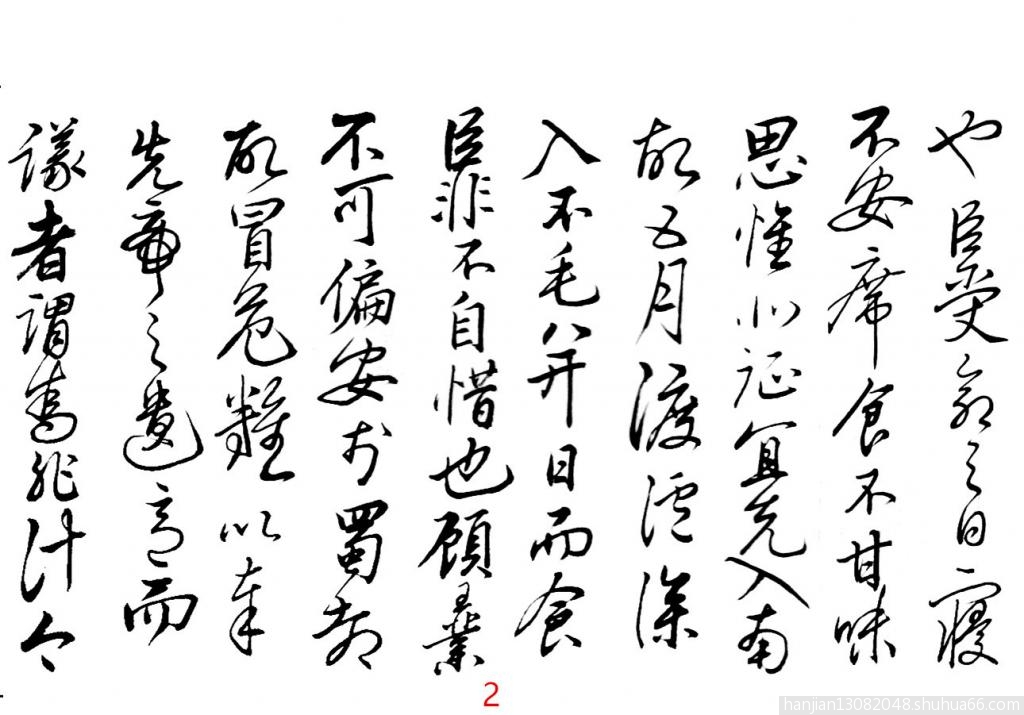 也臣受命之日寢
不安席食不甘味
思惟北征宜先入南
故五月渡瀘深
入不毛并日而食
臣非不自惜也顧王業
不可偏安於蜀都
故冒危難以奉
先帝之遺意而
議者謂為非計今
2
hanjian13082048.shuhua66.com